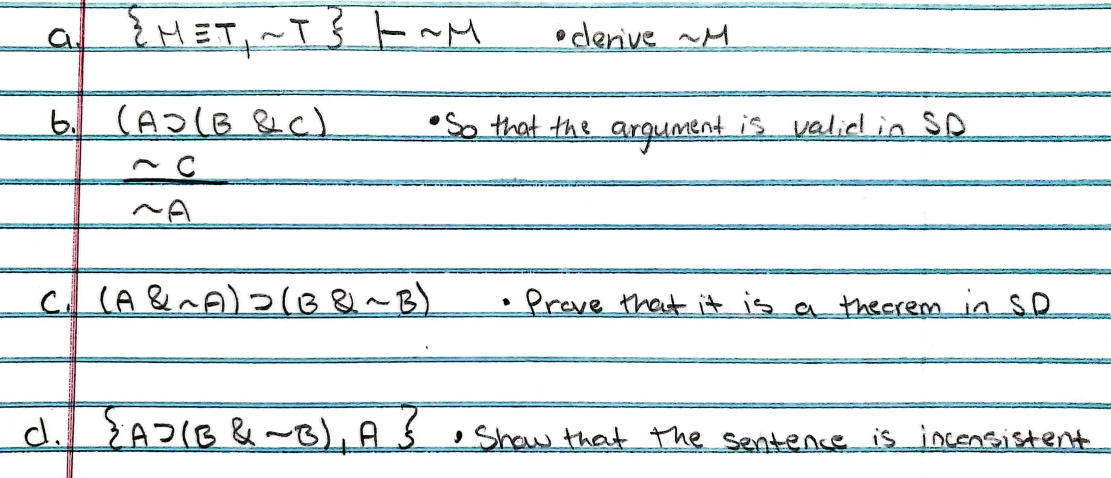 a. {M≡T, ~T} ⊢ ~M • derive ~M
b. (A⊃(B & C) • So that the argument is valid in SD
~ C
~A
c. (A & ~A) ⊃ (B & ~B) • Prove that it is a theorem in SD
d. {A⊃(B & ~B), A} • Show that the sentence is inconsistent